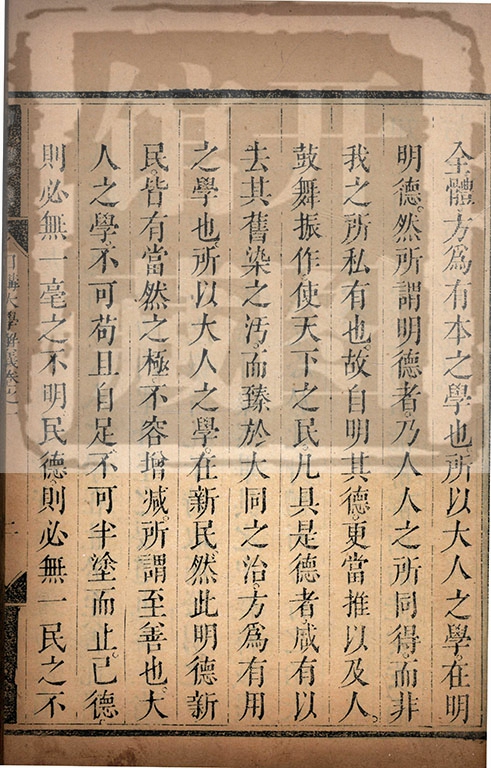 全體方爲有本之學也所以大人之學在明
明德。然所謂明德者。乃人人之所同得。而非
我之所私有也。故自明其德。更當推以及人。
鼓舞振作。使天下之民。凡具是德者。咸有以
去其舊染之汚。而臻於大同之治。方爲有用
之學也。所以大人之學。在新民。然此明德新
民。皆有當然之極。不容增減。所謂至善也。大
人之學。不可苟且自足。不可半塗而止。己德
則必無一毫之不明。民德則必無一民之不
日講大學解義卷之一